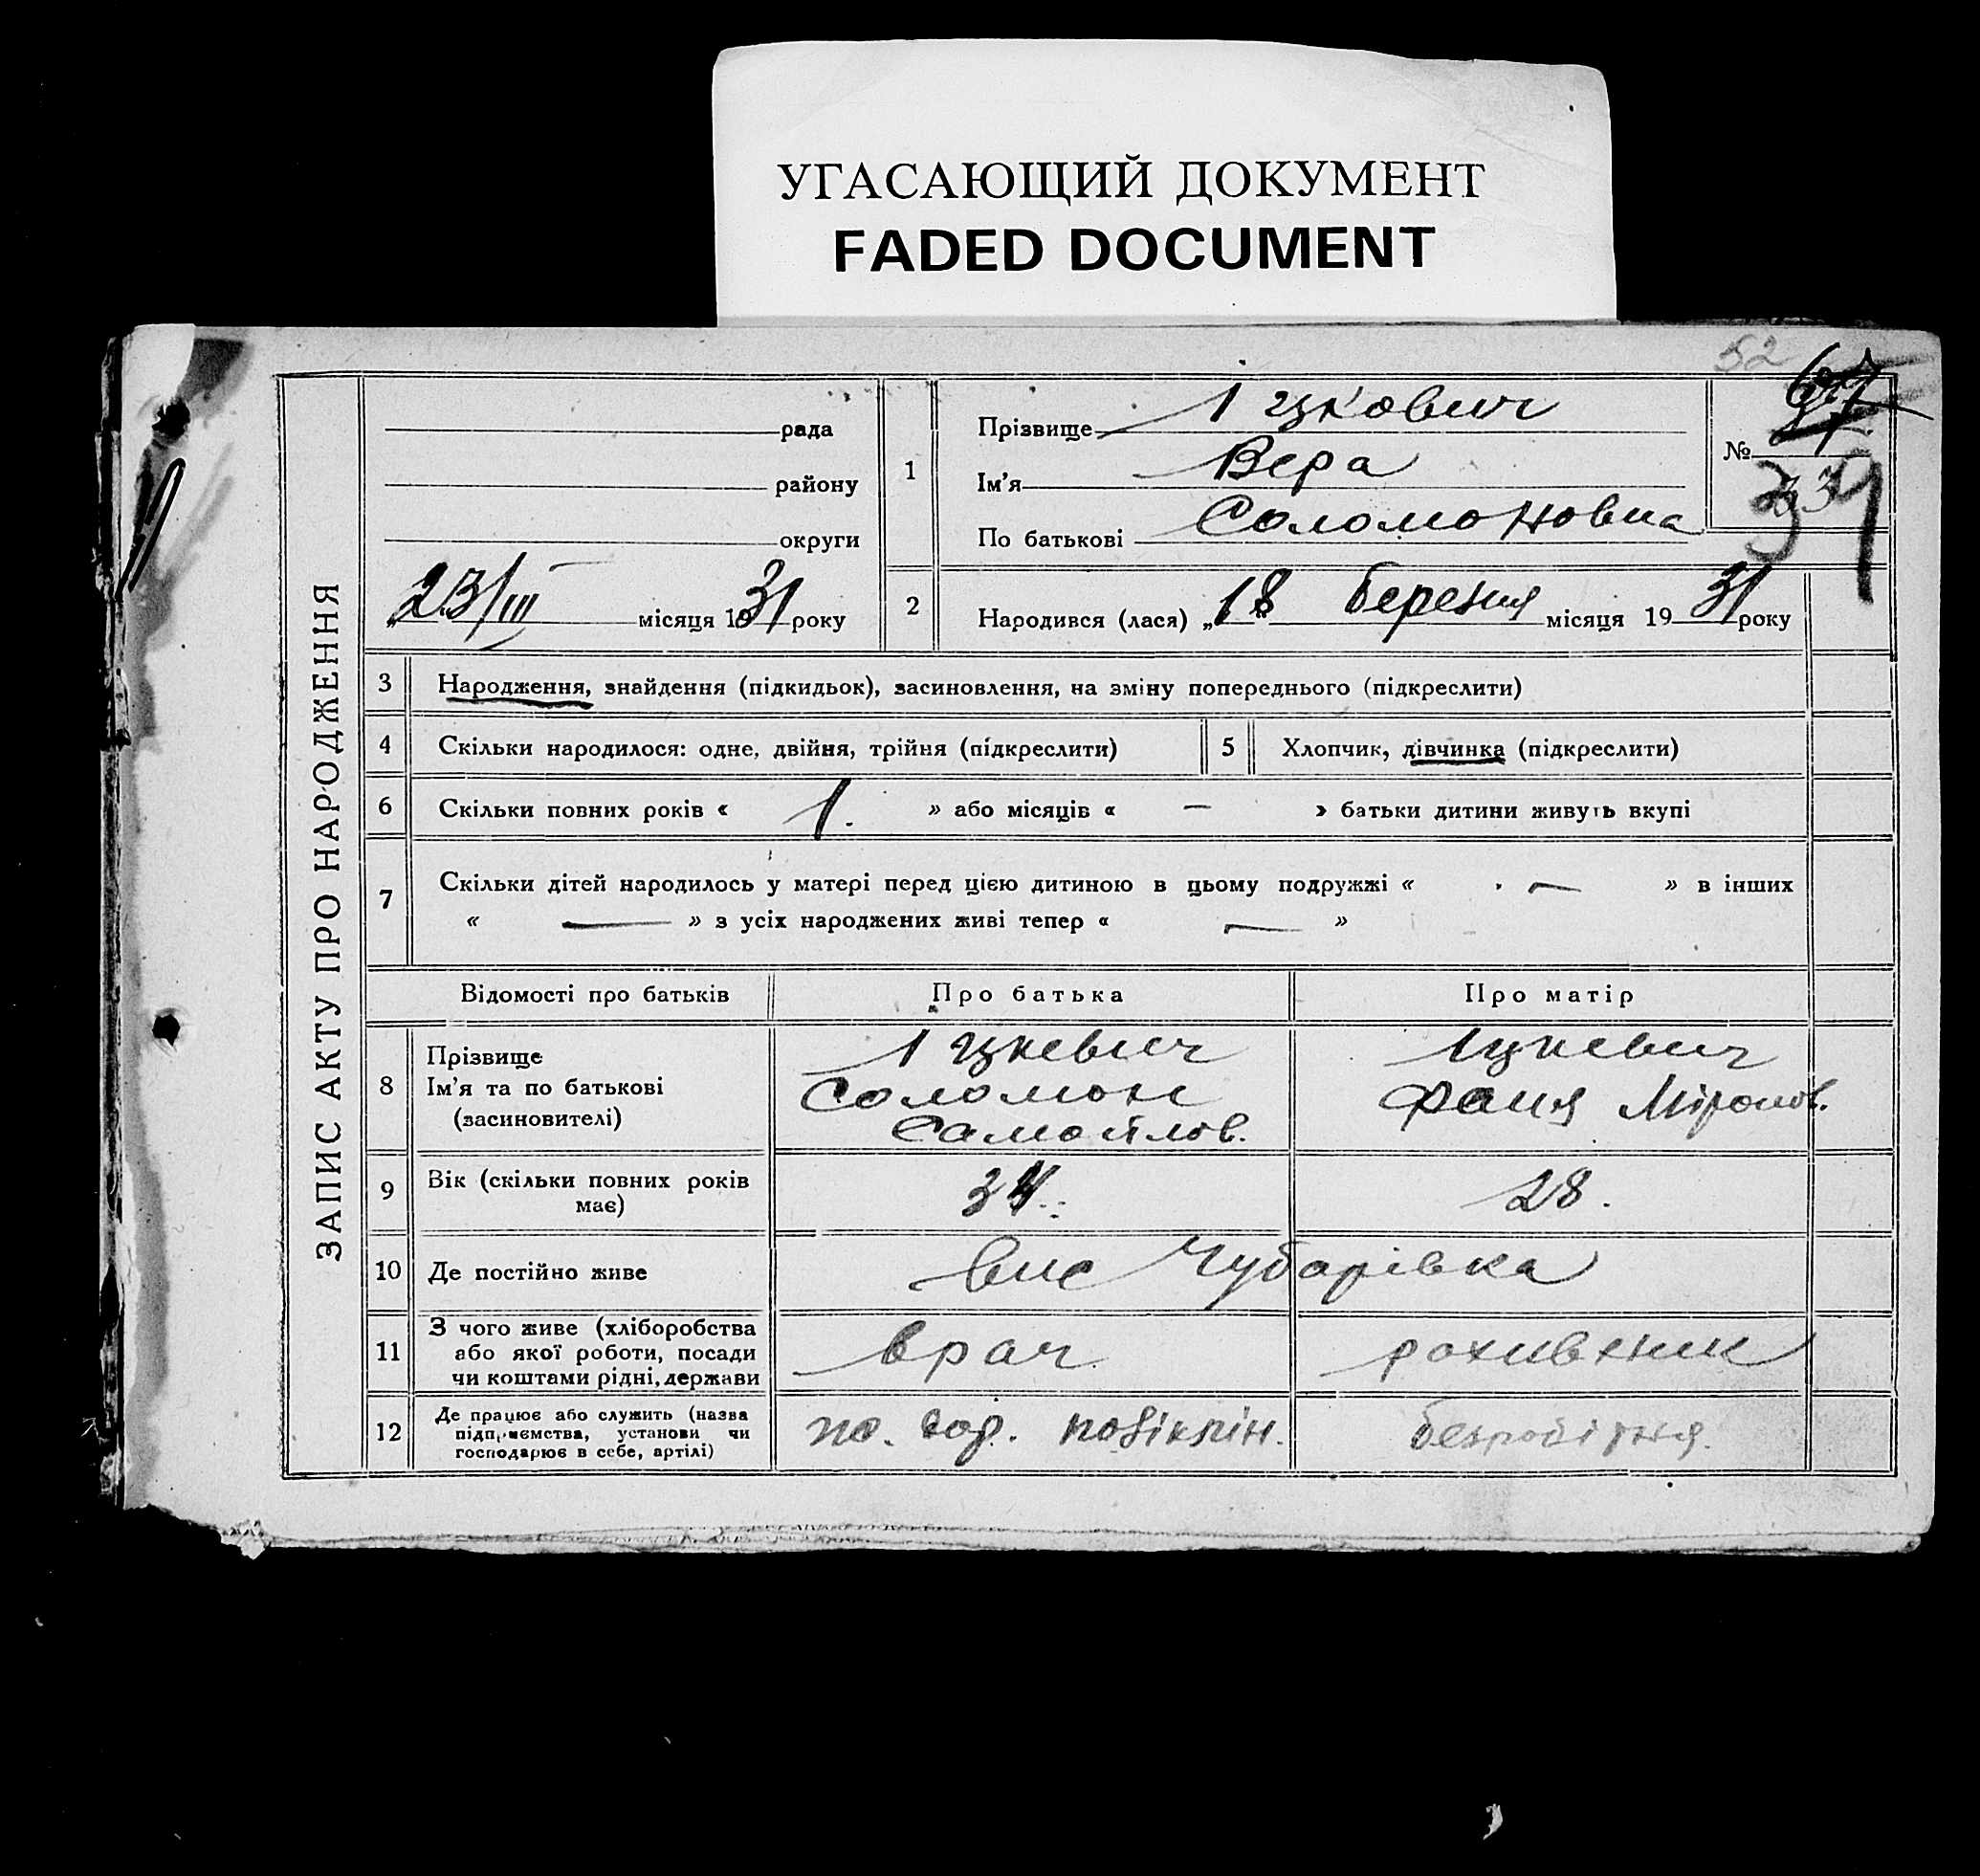 УГАСАЮЩИЙ ДОКУМЕНТ
FADED DOCUMENT
52
ЗАПИС АКТУ ПРО НАРОДЖЕННЯ
рада
району
округи
„23/III місяця 1931 року
1
Прізвище Іцкович
Ім’я Вера
По батькові Соломоновна
№
2
Народився (лася) „18 березня місяця 1931 року
3 Народження, знайдення (підкидьок), засиновлення, на зміну попереднього (підкреслити)
4 Скільки народилося: одне, двійня, трійня (підкреслити)
5 Хлопчик, дівчинка (підкреслити)
6 Скільки повних років « 1. » або місяців « — » батьки дитини живуть вкупі
7 Скільки дітей народилось у матері перед цією дитиною в цьому подружжі « — » в інших
« — » з усіх народжених живі тепер « — »
Відомості про батьків
Про батька
Про матір
8
Прізвище
Ім’я та по батькові
(засиновителі)
Іцкевич
Соломон
Самойлов.
Іцкевич
Фаня Міронов.
9
Вік (скільки повних років
має)
34.
28.
10 Де постійно живе
Чубарівка
11
З чого живе (хліборобства
або якої роботи, посади
чи коштами рідні, держави
врач
12
Де працює або служить (назва
підприємства, установи чи
господарює в себе, артілі)
безробітня.